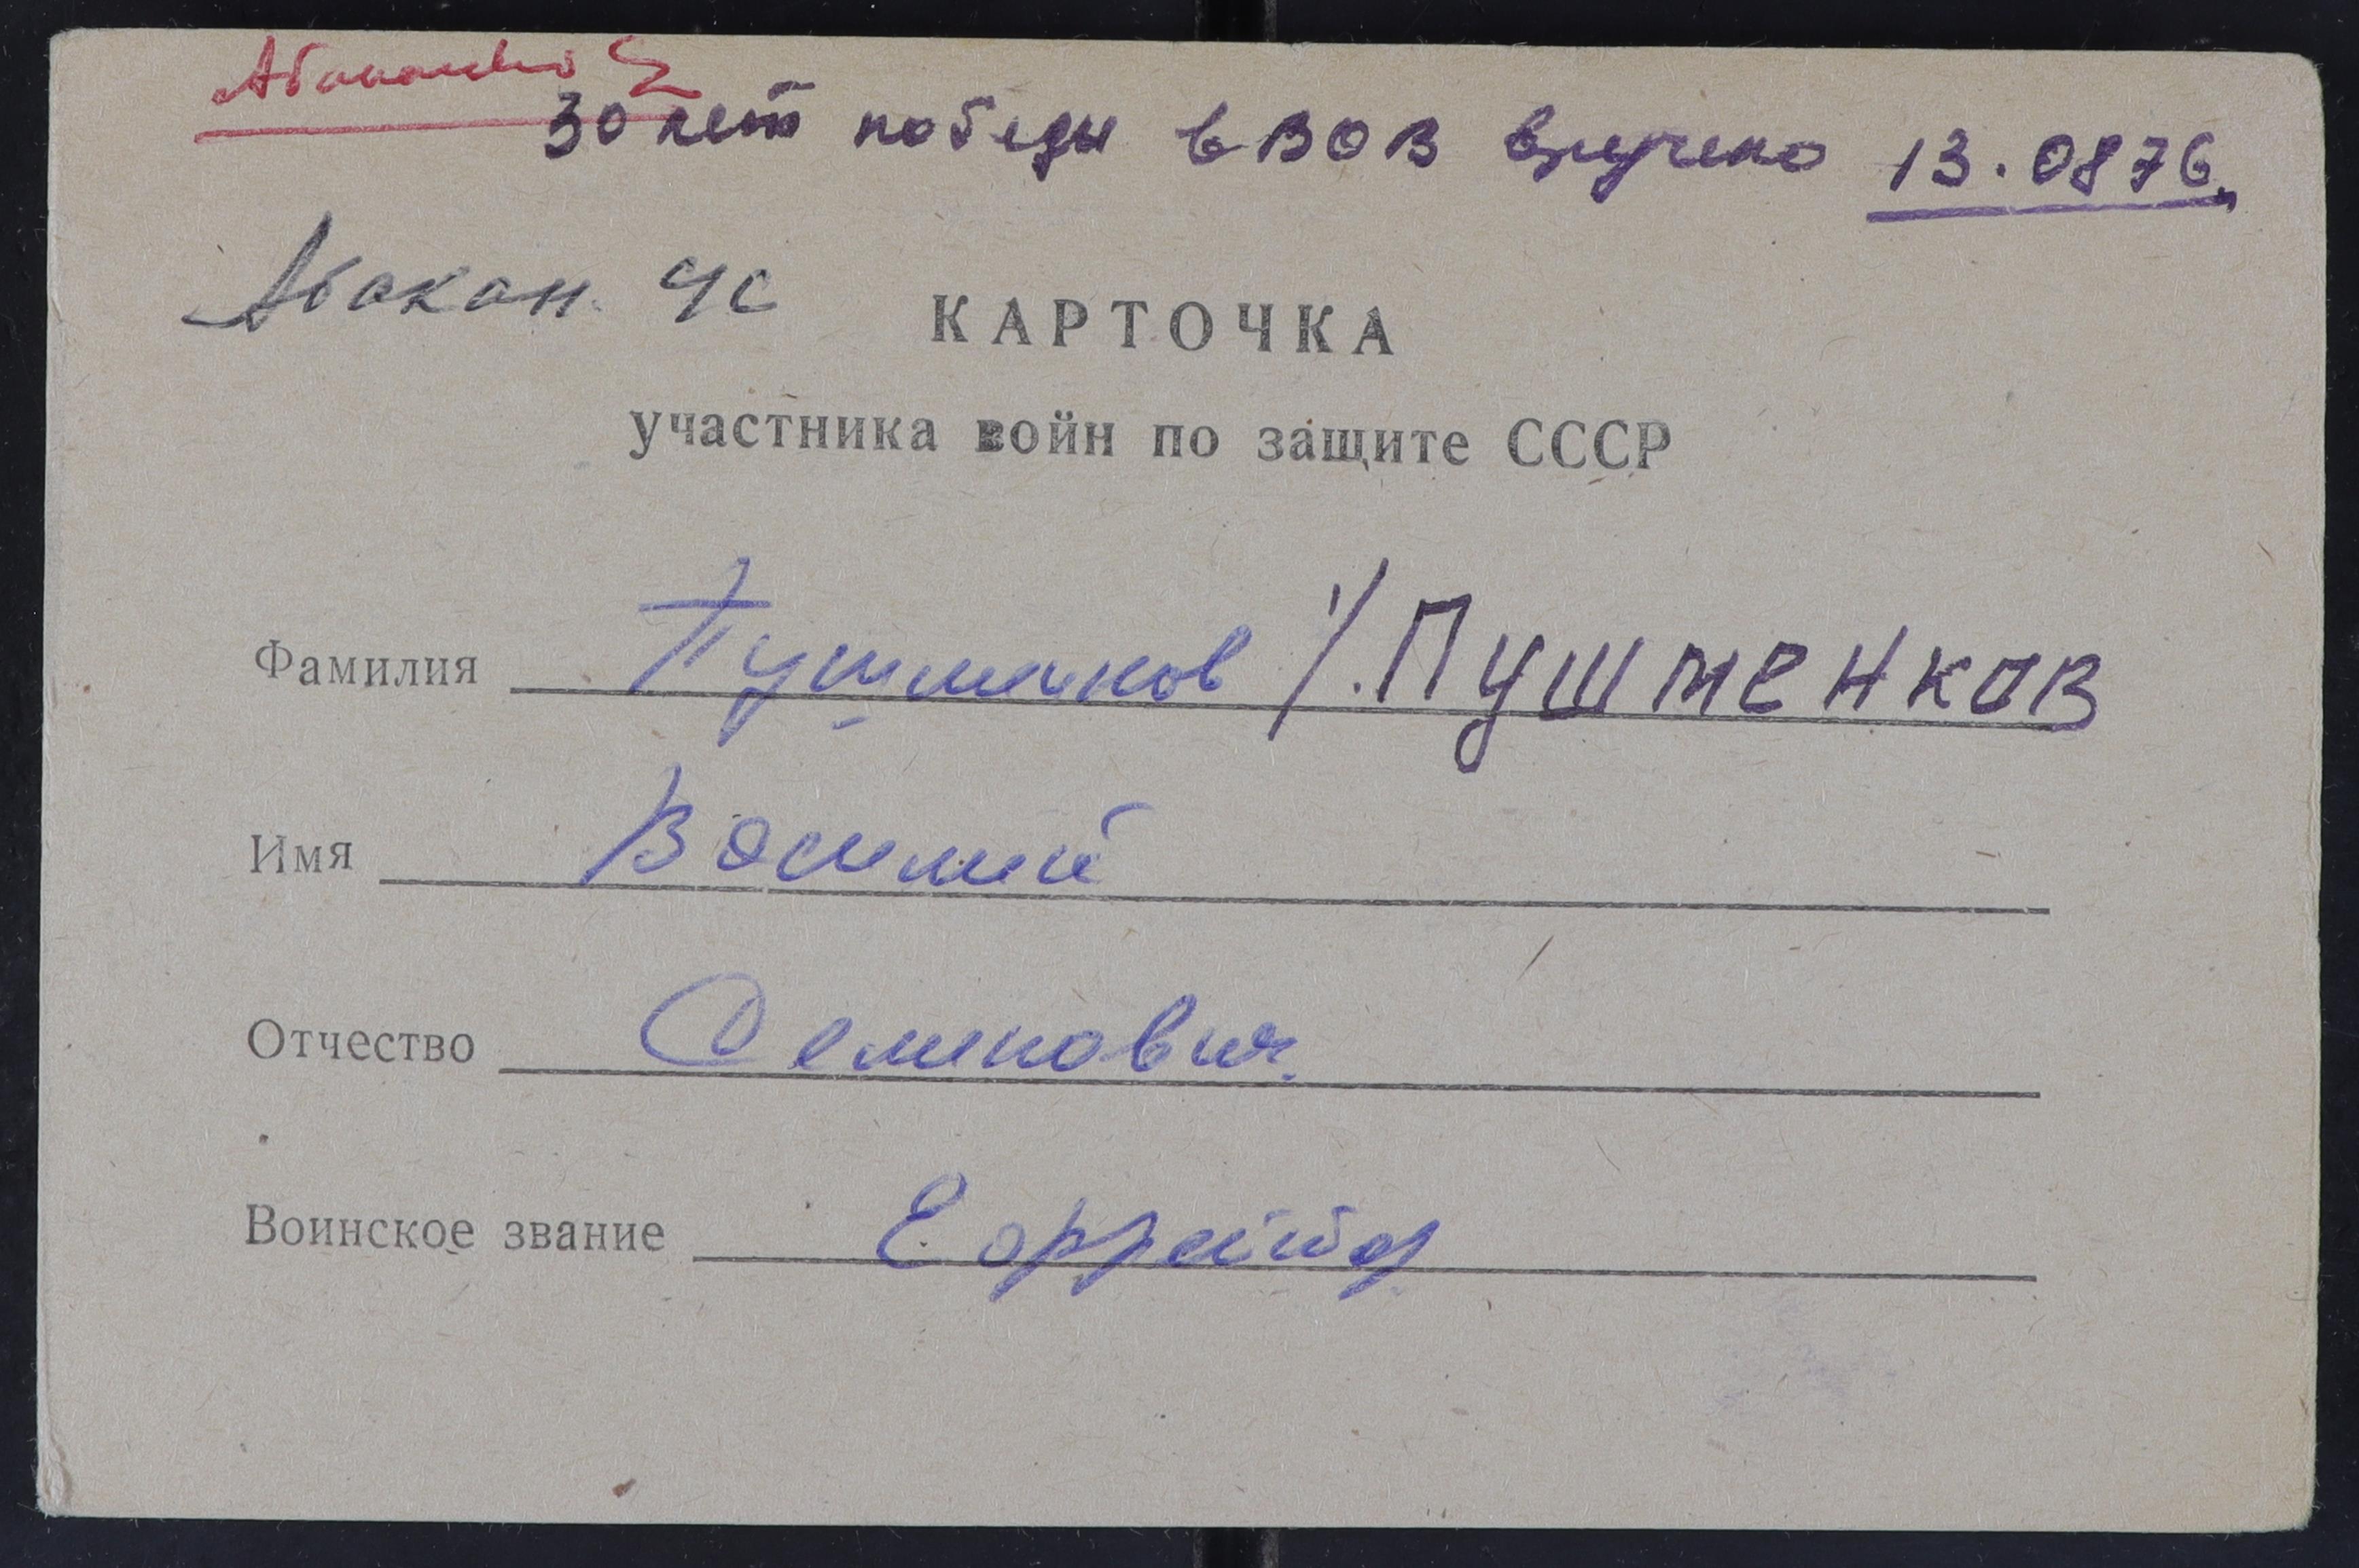 30 лет победы в ВОВ вручено 13.0876.
Абакан. ЧС
КАРТОЧКА
участника войн по защите СССР
Фамилия Пушменков /. Пушменков
Имя Василий
Отчество Семенович.
Воинское звание Еффрейтор